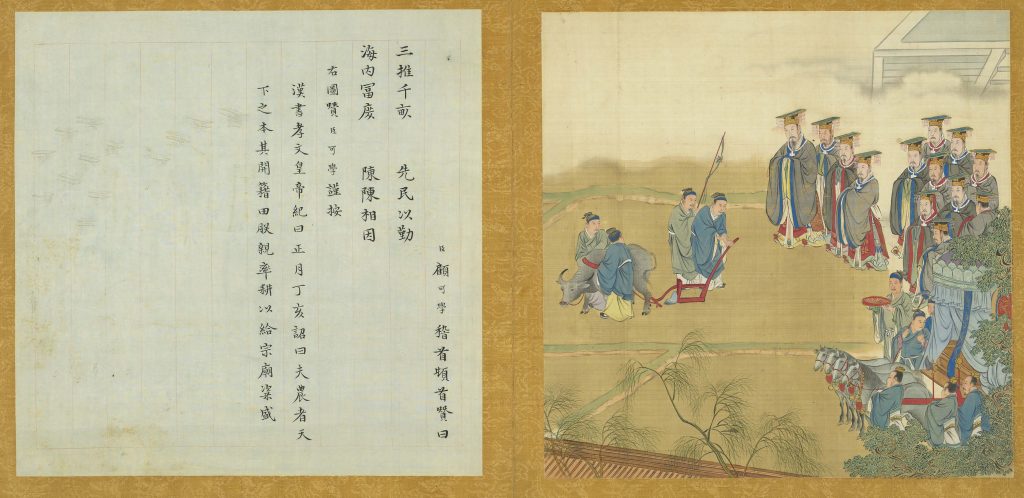 臣顧可學稽首頓首贊曰
三推千畝 先民以勤
海內冨庶 陳陳相因
右圖贊臣可學謹按
漢書孝文皇帝紀曰正月丁亥詔曰夫農者天
下之本其開籍田朕親率耕以給宗廟粢盛